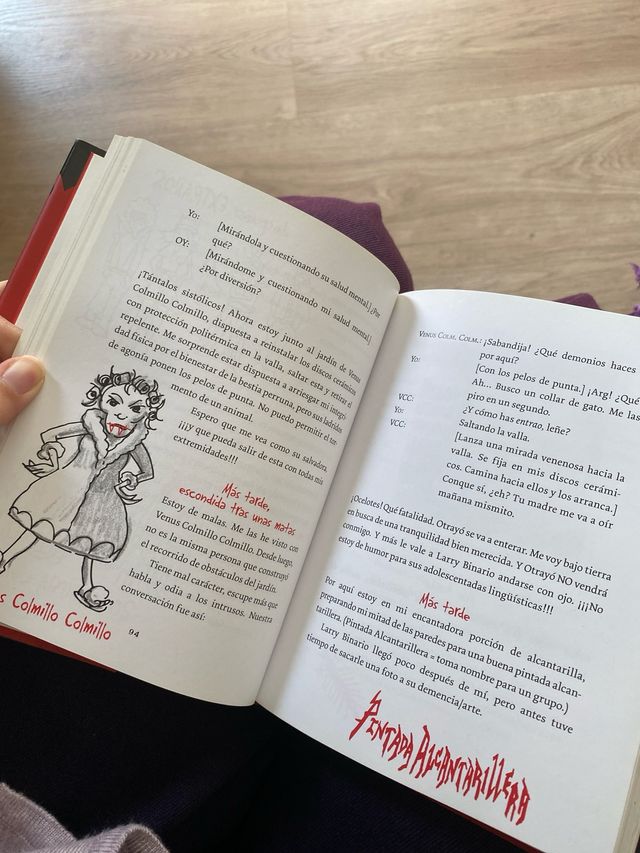 Yo: [Mirándola y cuestionando su salud mental.] ¿Por
qué?
OY: [Mirándome y cuestionando mi salud mental.]
¿Por diversión?
¡Tántalos sistólicos! Ahora estoy junto al jardín de Venus
Colmillo Colmillo, dispuesta a reinstalar los discos cerámicos
con protección politérmica en la valla, saltar esta y retirar el
repelente. Me sorprende estar dispuesta a arriesgar mi integri-
dad física por el bienestar de la bestia perruna, pero sus ladridos
de agonía ponen los pelos de punta. No puedo permitir el tor-
mento de un animal.
Espero que me vea como su salvadora,
¡¡¡y que pueda salir de esta con todas mis
extremidades!!!
Más tarde,
escondida tras unas matas
Estoy de malas. Me las he visto con
Venus Colmillo Colmillo. Desde luego,
no es la misma persona que construyó
el recorrido de obstáculos del jardín.
Tiene mal carácter, escupe más que
habla y odia a los intrusos. Nuestra
conversación fue así:
s Colmillo Colmillo
94
Venus Colm. Colm.: ¡Sabandija! ¿Qué demonios haces
por aquí?
Yo: [Con los pelos de punta.] ¡Arg! ¿Qué
Ah... Busco un collar de gato. Me las
piro en un segundo.
VCC: ¿Y cómo has entrao, leñe?
Yo: Saltando la valla.
VCC: [Lanza una mirada venenosa hacia la
valla. Se fija en mis discos cerámi-
cos. Camina hacia ellos y los arranca.]
Conque sí, ¿eh? Tu madre me va a oír
mañana mismito.
¡Ocelotes! Qué fatalidad. Otrayó se va a enterar. Me voy bajo tierra
en busca de una tranquilidad bien merecida. Y Otrayó NO vendrá
conmigo. Y más le vale a Larry Binario andarse con ojo. ¡¡¡No
estoy de humor para sus adolescentadas lingüísticas!!!
Más tarde
Por aquí estoy en mi encantadora porción de alcantarilla,
preparando mi mitad de las paredes para una buena pintada alcan-
tarillera. (Pintada Alcantarillera = toma nombre para un grupo.)
Larry Binario llegó poco después de mí, pero antes tuve
tiempo de sacarle una foto a su demencia/arte.
PINTADA ALCANTARILLERA